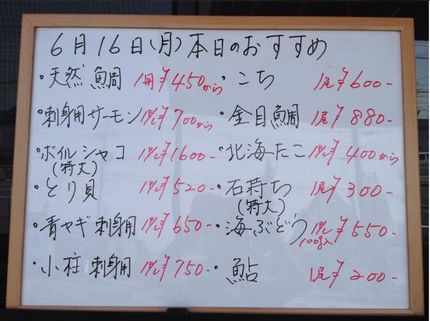 6月16日(月)本日のおすすめ
・天然鯛 1冊¥450から
・刺身用サーモン 1パック¥700から
・ボイルシャコ(特大) 1パック¥1600-
・とり貝 1パック¥520-
・青ヤギ刺身用 1パック¥650-
・小柱刺身用 1パック¥750-
・こち 1尾¥600-
・金目鯛 1尾¥880-
・北海たこ 1パック¥400から
・石持ち(特大) 1尾¥300-
・海ぶどう 1パック100g入¥550-
・鮎 1尾¥200-